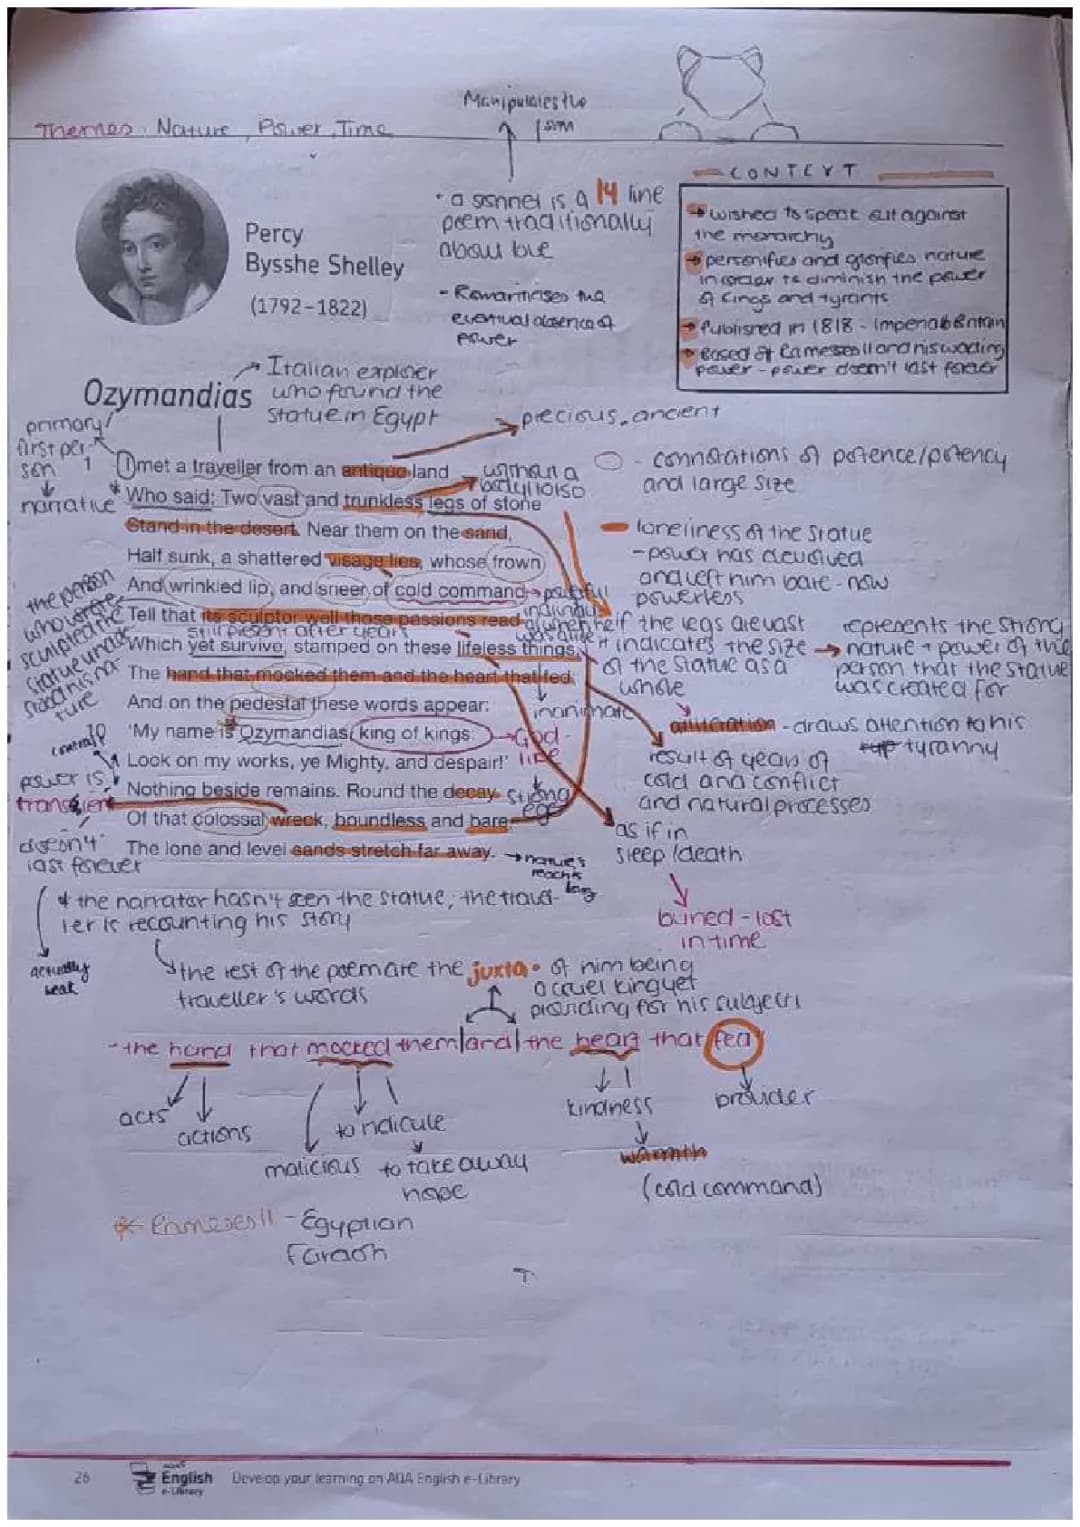 Manipulates the
form
Themes: Nature, Power, Time
CONTEXT
Percy
Bysshe Shelley
(1792-1822)
• a sonnet is a 14 line
poem traditionally
about love
- Romanticises the
eventual absence of
power
→ wished to speak out against
the monarchy
→ personifies and glorifies nature
in order to diminish the power
of kings and tyrants
→ Published in 1818 - Imperial Britain
→ Based of Rameses II and his wading
power - power doesn't last forever
Italian explorer
who found the
statue in Egypt
Ozymandias
precious, ancient
primary/
first per-
son
narrative
1
I met a traveller from an antique land
Who said: Two vast and trunkless legs of stone
Stand in the desert. Near them on the sand,
Half sunk, a shattered visage lies, whose frown
And wrinkled lip, and sneer of cold command
Tell that its sculptor well those passions read
Which yet survive, stamped on these lifeless things,
The hand that mocked them and the heart that fed;
And on the pedestal these words appear:
10
'My name is Ozymandias, king of kings:
Look on my works, ye Mighty, and despair!'
Nothing beside remains. Round the decay
Of that colossal wreck, boundless and bare
The lone and level sands stretch far away.
without a
body/torso
- connotations of potence/potency
and large size
loneliness of the statue
- power has devolved
and left him bare - now
powerless
powerful
the person
who wrote
sculpted the
statue
still present after years
if the legs are vast
it indicates the size
of the statue as a
whole
represents the strong
nature + power of the
person that the statue
was created for
inanimate
God-
like
strong
ego
alliteration - draws attention to his
tyranny
result of years of
cold and conflict
and natural processes
power is
transient
doesn't
last forever
actually
weak
as if in
sleep/death
buried - lost
in time
nature's
reach is
long
* the narrator hasn't seen the statue, the travel-
ler is recounting his story
the rest of the poem are the
traveller's words
juxta. of him being
a cruel king yet
providing for his subjects
- the hand that mocked them and the heart that fed
acts
actions
to ridicule
malicious
to take away
hope
kindness
warmth
(cold command)
provider
* Rameses II - Egyptian
Faraoh
26
English
e-Library
Develop your learning on AQA English e-Library